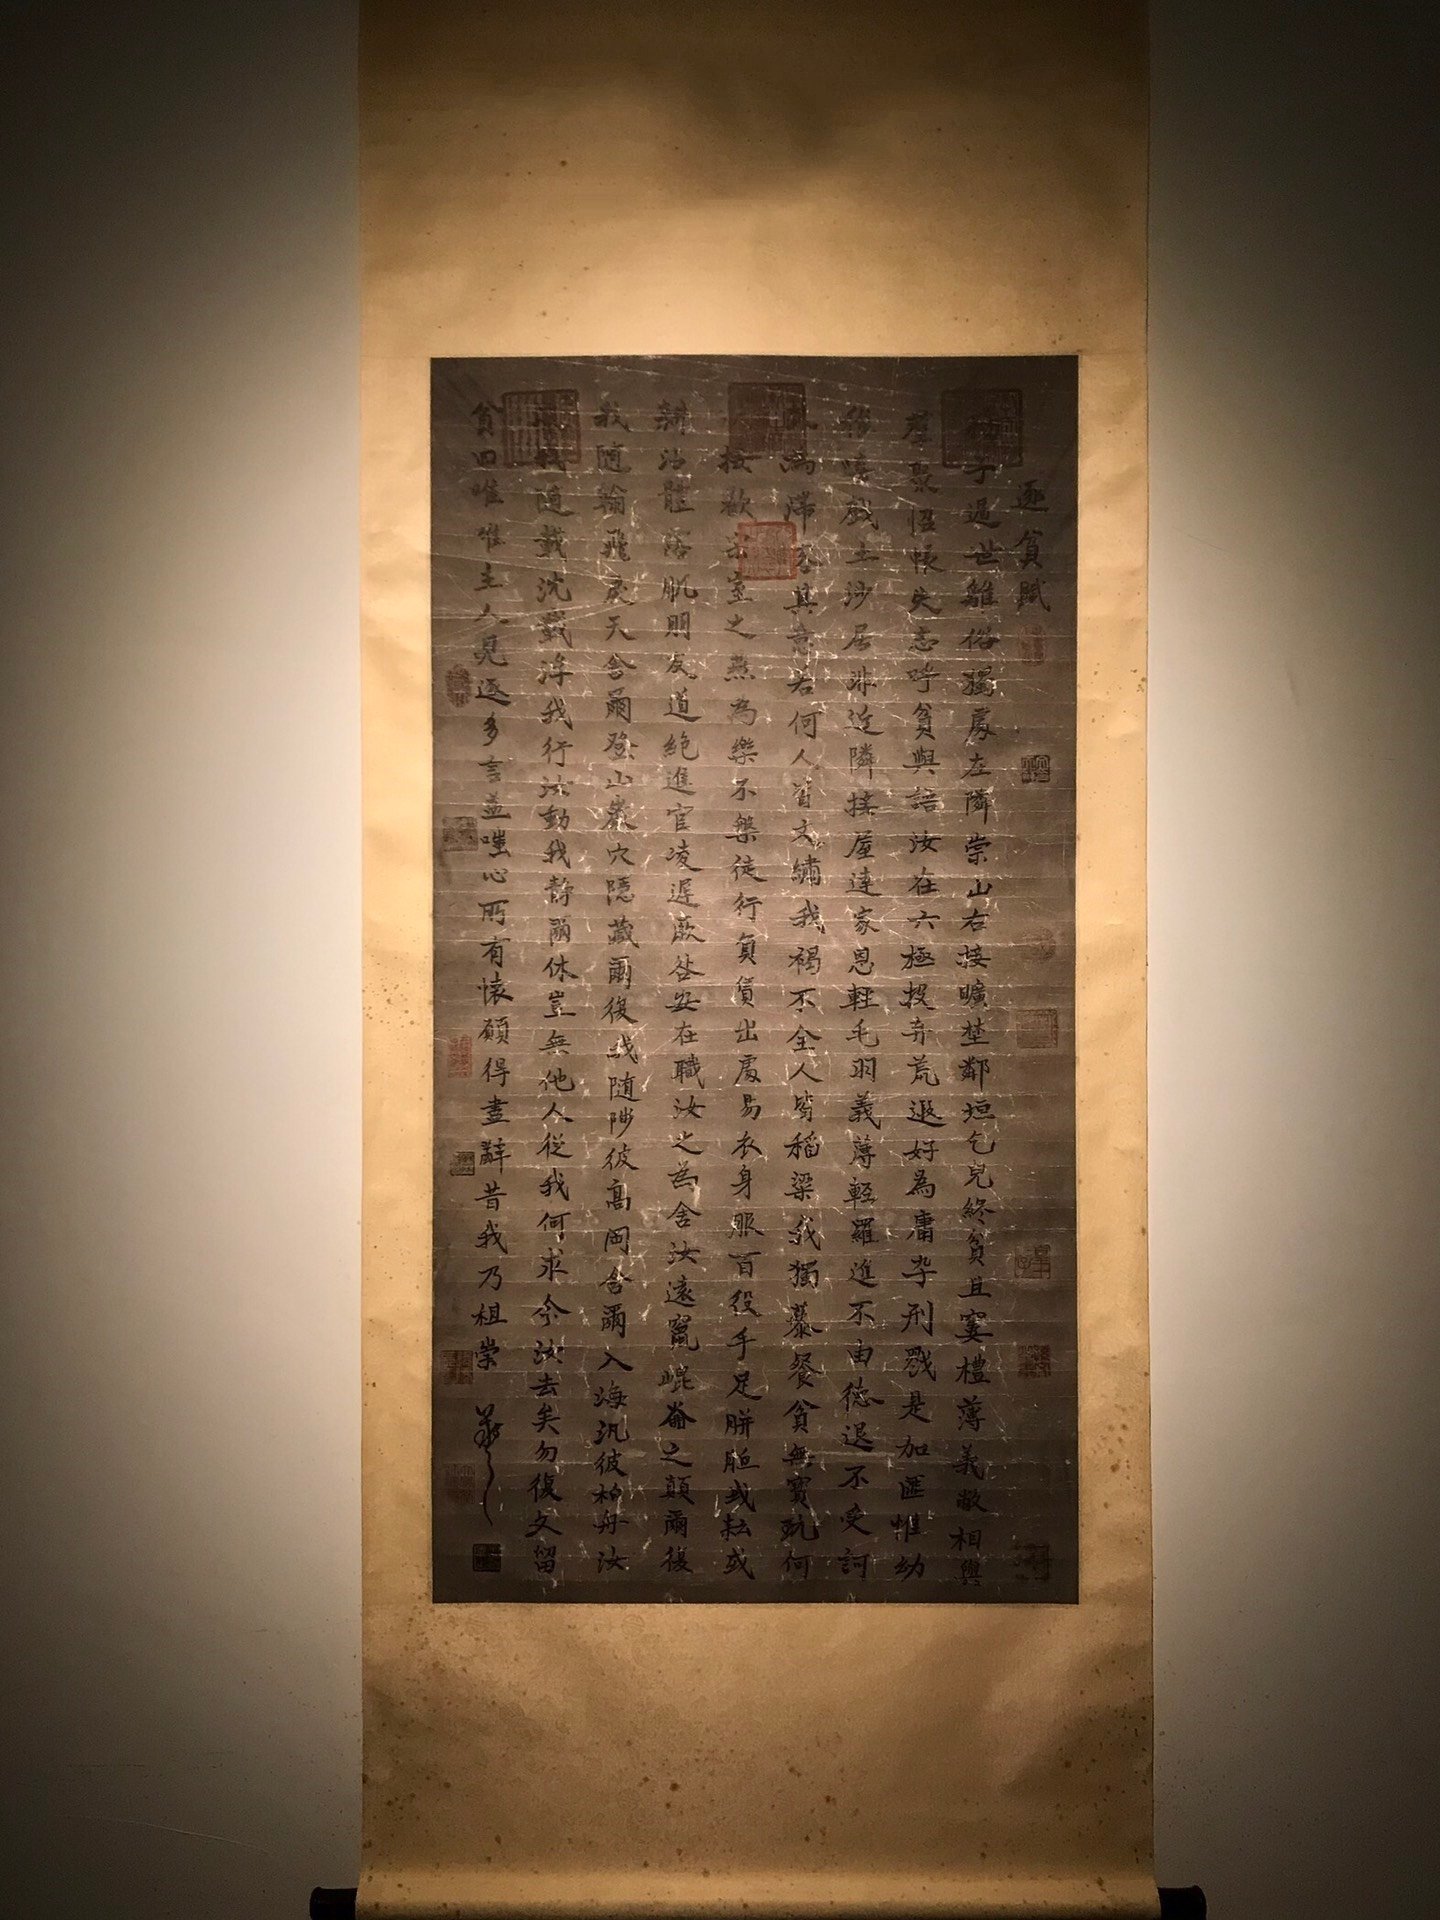 逐貧賦
子遁世離俗獨處左隣崇山右接曠埜鄰垣乞兒終貧且窶禮薄義敝相與
羣聚惆悵失志呼貧與語汝在六極投弃荒遐好為庸卒刑戮是加匪惟幼
稚嬉戲土沙居非近隣接屋連家恩輕毛羽義薄輕羅進不由德退不受訶
為滯客其意若何人皆文繡我褐不全人皆稻粱我獨藜餐貧無寶玩何
接歡宗室之燕為樂不槃徒行負賃出處易衣身服百役手足胼胝或耘或
耕沾體露肌朋友道絶進官凌遲厥咎安在職汝之為舍汝遠竄崐崙之顛爾復
我隨翰飛戾天舍爾登山巖穴隱藏爾復我隨陟彼高岡舍爾入海汎彼柏舟汝
隨載沈載浮我行汝動我静爾休豈無他人從我何求今汝去矣勿復久留
貧曰唯唯主人見逐多言益嗤心所有懷願得盡辭昔我乃祖崇